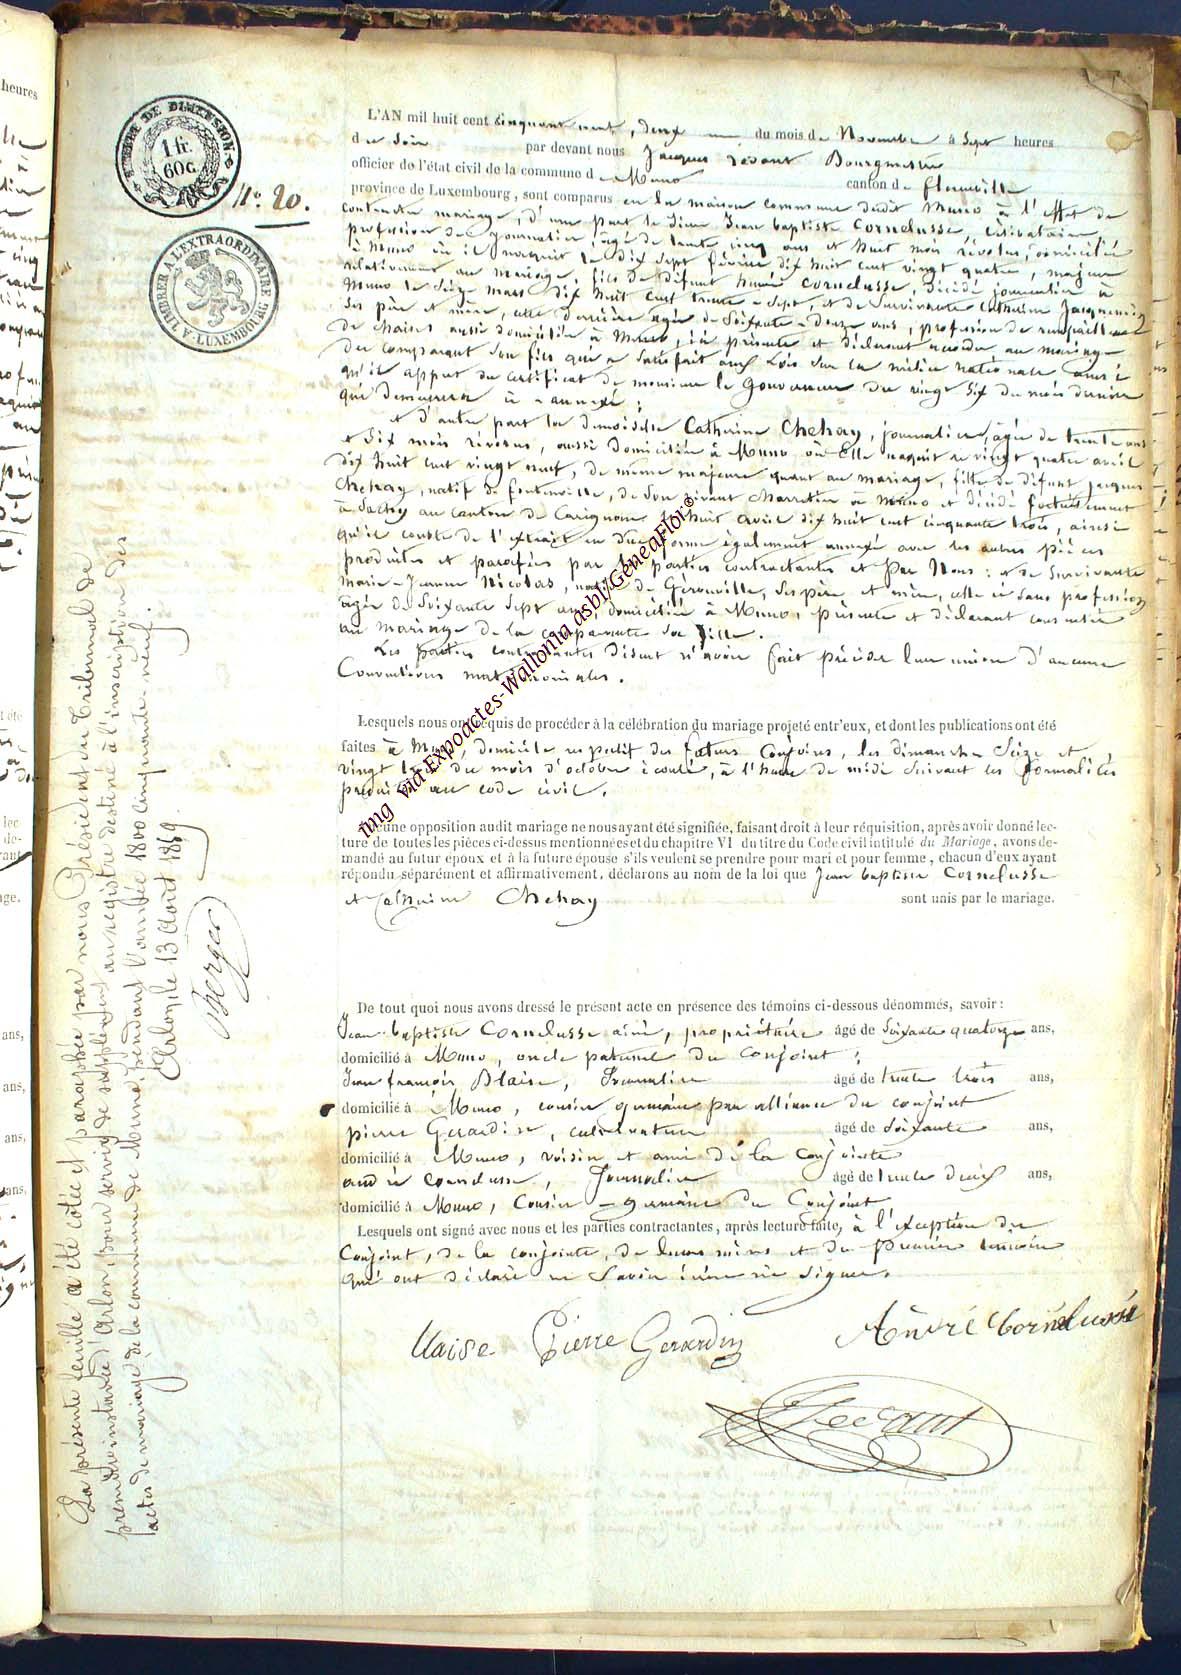 TIMBRE DE DIMENSION
1 fr. 60 C.
N.º 20.
TIMBRER A L'EXTRAORDINAIRE
A. LUXEMBOURG
L'AN mil huit cent cinquante neuf, deux du mois de Novembre à Sept heures
du Soir par devant nous Jacques Bourgmestre
officier de l'état civil de la commune de Muno canton de florenville
province de Luxembourg, sont comparus en la maison commune dudit Muno à l'effet de
contracter mariage, d'une part le Sieur Jean baptiste Cornelusse, célibataire,
profession de journalier, âgé de trente cinq ans et huit mois révolus, domicilié
à Muno où il naquit le dix Sept février dix huit cent vingt quatre, majeur
relativement au mariage, fils de défunt Cornelusse, décédé journalier à
Muno le Seize mars dix huit cent trente-Sept, et de Survivante Catherine
Ses père et mère, cette dernière agée de Soixante-douze ans, profession de
de chaises aussi domiciliée à Muno, ici présente et déclarant accéder au mariage
du comparant Son fils qui a Satisfait aux Lois Sur la milice nationale ainsi
qu'il appert du certificat de monsieur le Gouverneur du vingt Six du mois dernier
qui demeurera ci-annexé;
et d'autre part la demoiselle Catherine Chehay, journalière, âgée de trente ans
et Six mois révolus, aussi domiciliée à Muno, où Elle naquit le vingt quatre avril
dix huit cent vingt neuf, de même majeure quant au mariage, fille de défunt jacques
Chehay, natif de fontenoille, de Son vivant à Muno et décédé fortuitement
à Sachy au canton de Carignan le huit avril dix huit cent cinquante trois, ainsi
qu'il conste de l'extrait en due forme également annexé avec les autres pièces
produites et parafées par les parties contractantes et Par Nous: et de Survivante
Marie-Jeanne Nicolas, native de Gérouville, Ses père et mère, celle ci Sans profession
agée de Soixante Sept ans, domiciliée à Muno, présente et déclarant consentir
au mariage de la comparante Sa fille.
Les parties contractantes disent n'avoir fait précéder leur union d'aucune
Conventions matrimoniales.
Lesquels nous ont requis de procéder à la célébration du mariage projeté entr'eux, et dont les publications ont été
faites à Muno, domicile respectif des futurs Conjoints, les dimanche Seize et
vingt trois du mois d'octobre écoulé, à l'heure de midi Suivant les formalités
prescrites au code civil.
Aucune opposition audit mariage ne nous ayant été signifiée, faisant droit à leur réquisition, après avoir donné lec-
ture de toutes les pièces ci-dessus mentionnées et du chapitre VI du titre du Code civil intitulé du Mariage, avons de-
mandé au futur époux et à la future épouse s'ils veulent se prendre pour mari et pour femme, chacun d'eux ayant
répondu séparément et affirmativement, déclarons au nom de la loi que Jean baptiste Cornelusse
et Catherine Chehay sont unis par le mariage.
De tout quoi nous avons dressé le présent acte en présence des témoins ci-dessous dénommés, savoir:
Jean-baptiste Cornelusse ainé, propriétaire âgé de Soixante quatorze ans,
domicilié à Muno, oncle paternel du conjoint;
Jean françois Blaise, Journalier âgé de trente trois ans,
domicilié à Muno, cousin germain par alliance du conjoint
pierre Gerardin, cultivateur âgé de Soixante ans,
domicilié à Muno, voisin et ami de la conjointe
andré Cornelusse, Journalier âgé de trente deux ans,
domicilié à Muno, Cousin-germain du Conjoint
Lesquels ont signé avec nous et les parties contractantes, après lecture faite, à l'exception du
Conjoint, de la conjointe, de leurs mères et du premier témoin
qui ont déclaré ne Savoir écrire ni Signer.
Blaise Pierre Gerardin André Cornelusse
La présente feuille a été cotée et paraphée par nous Président du Tribunal de
première instance d'Arlon, pour servir de supplément au registre destiné à l'inscription des
actes de mariage de la commune de Muno, pendant l'année 1800 Cinquante-neuf.
Arlon, le 13 Août 1859.
Berger
img via Expoactes-Wallonia asbl/GénéaFlor©
heures
ans,
ans,
ans,
ans,